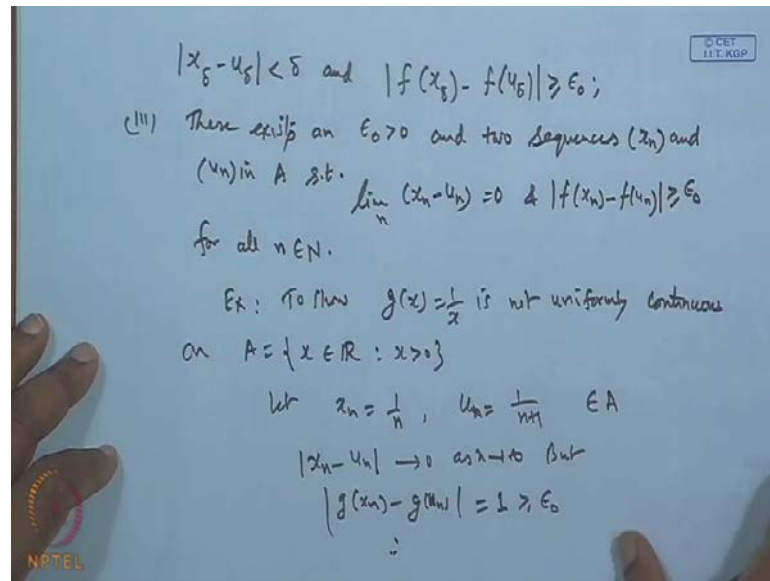 © CET
I.I.T. KGP
|x_δ - u_δ| < δ and |f(x_δ) - f(u_δ)| ≥ ϵ₀;
(III) There exists an ϵ₀>0 and two sequences (xₙ) and
(uₙ) in A s.t. lim_n (xₙ-uₙ) = 0 & |f(xₙ)-f(uₙ)| ≥ ϵ₀
for all n ∈ N.
Ex: To show g(x) = 1/x is not uniformly continuous
on A = {x ∈ R : x>0}
let xₙ = 1/n, uₙ = 1/(n+1) ∈ A
|xₙ - uₙ| → 0 as n→∞ But
|g(xₙ) - g(uₙ)| = 1 ≥ ϵ₀
∴
NPTEL